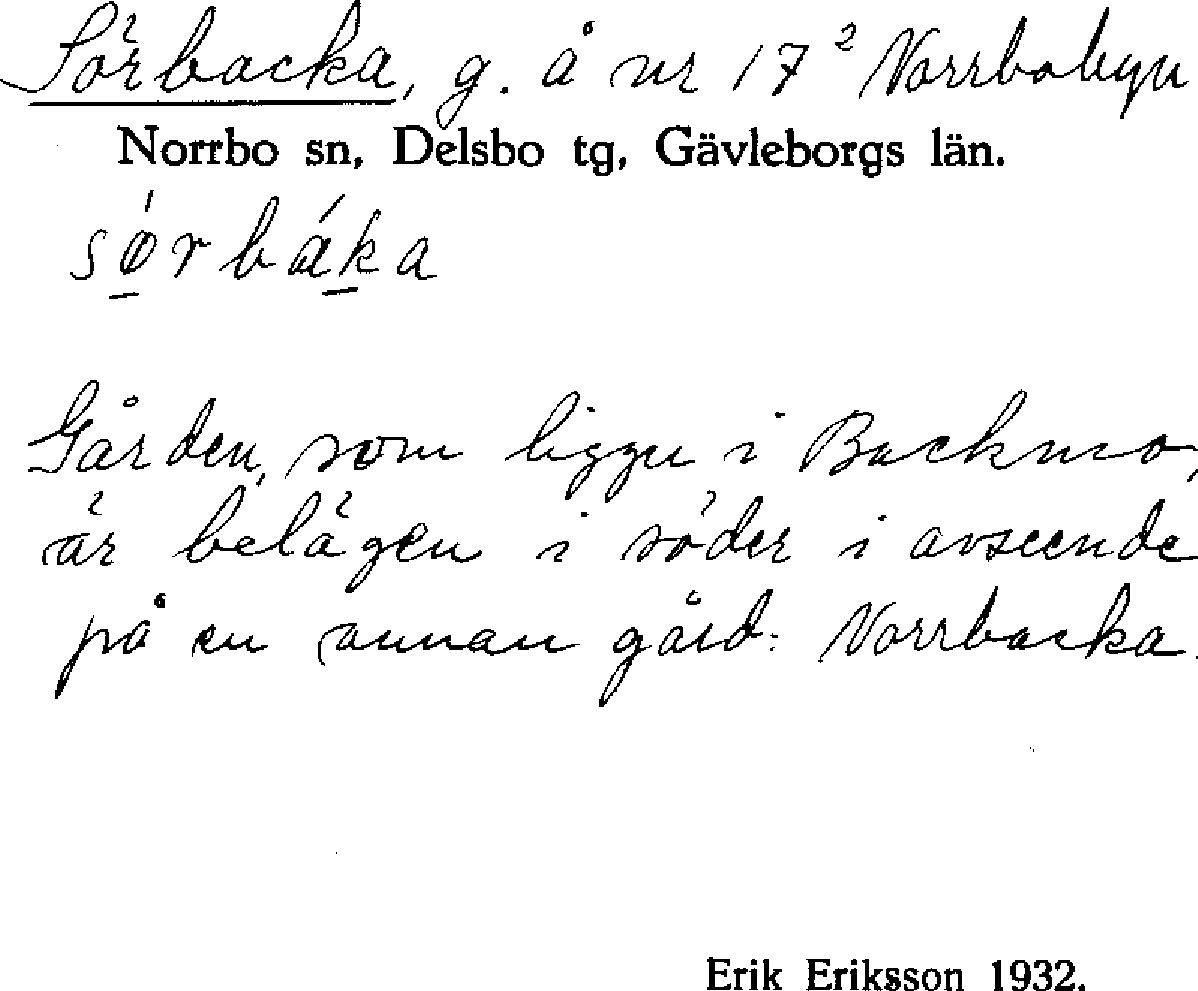 Sörbacka, g. å nr 17² Norrbobyn
Norrbo sn, Delsbo tg, Gävleborgs län.
sǿ̱rbáḵa
Gården, som ligger i Backmo,
är belägen i söder i avseende
på en annan gård: Norrbacka.
Erik Eriksson 1932.